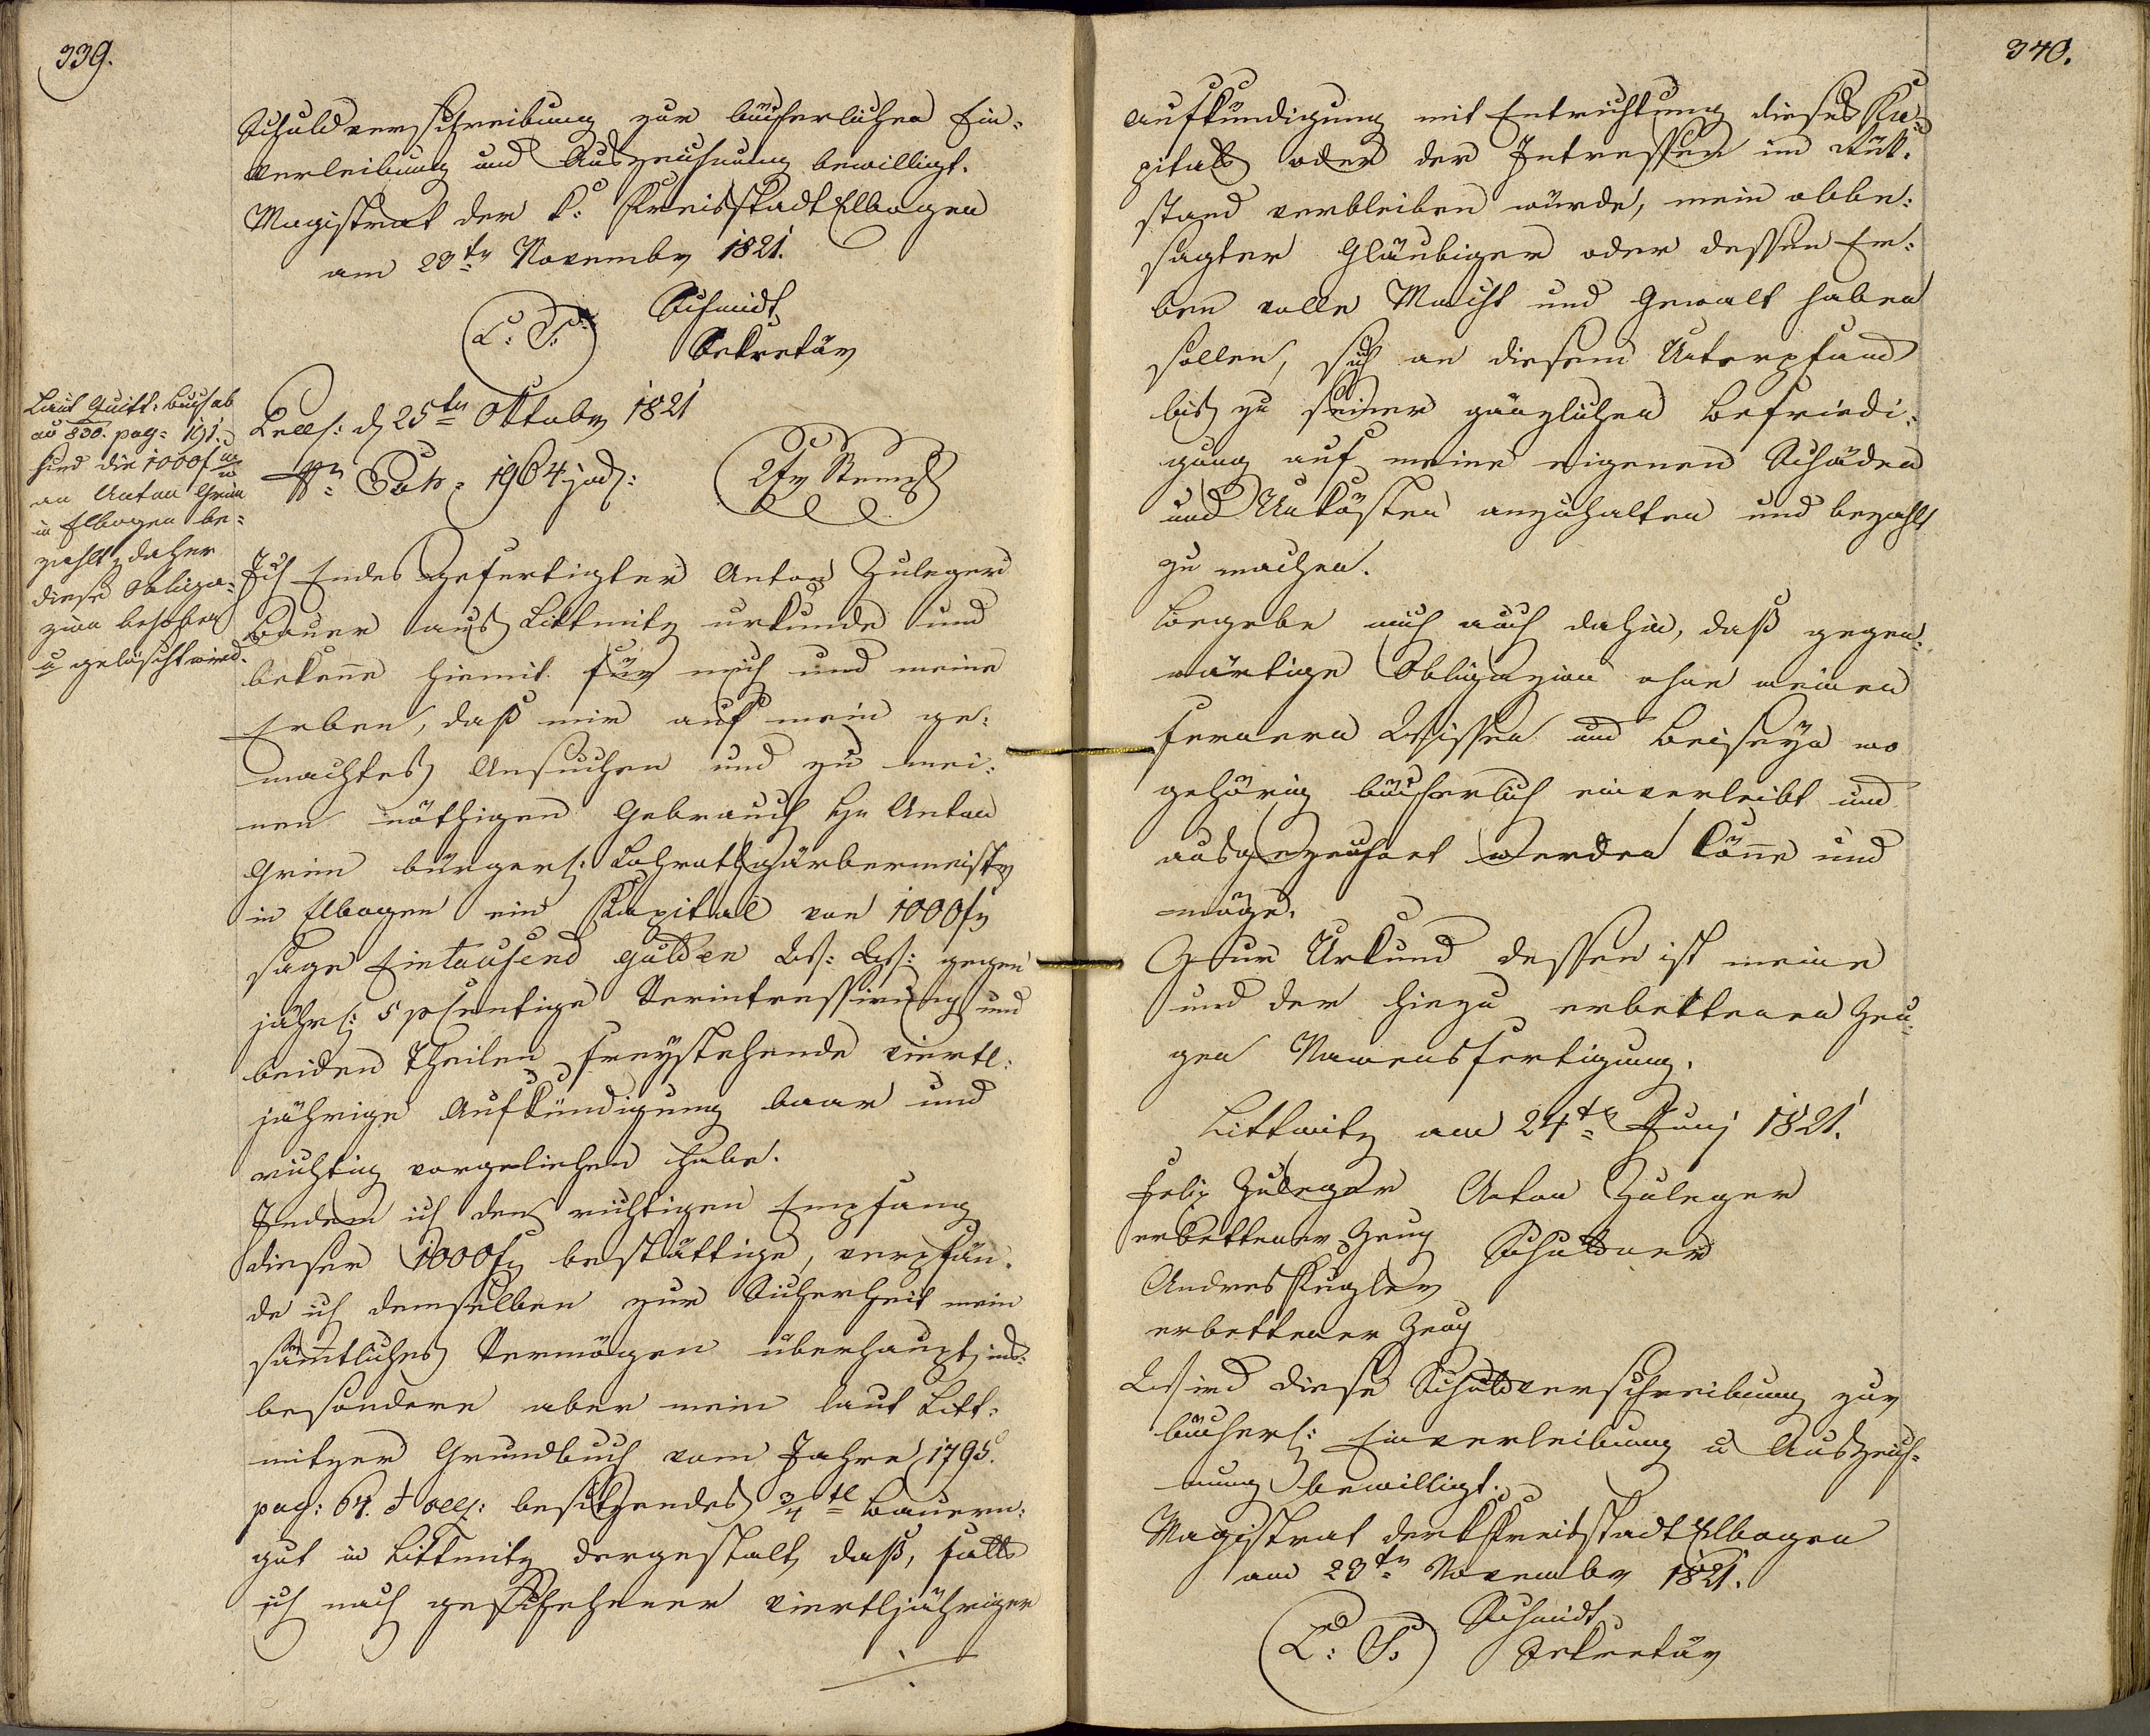 339.
Schuldverschreibung zur bücherlichen Ein-
verleibung und Auszeichnung bewilligt.
Magistrat der k: Kreisstadt Elbogen
am 23ten Novembr 1821.
L: S: Schmidt
Sekretär
Laut Quitt: buch ab
ao 830. pag: 191.
sind die 1000 f
an Anton Grim
in Elbogen be-
zahlt, daher
diese Obliga-
zion behoben
u gelöscht wird.
d 25ten Oktobr 1821
1964 jud: 2 fr Stempl
Ich Endesgefertigter Anton Zuleger
Bauer aus Littmitz urkunde und
bekenne hiemit für mich und meine
Erben, daß mir auf mein ge-
machtes Ansuchen und zu mei-
nen nöthigen Gebrauch Hr Anton
Grim bürgerl: Lohrothgärbermeistr
in Elbogen ein Kapital von 1000 fr
sage Eintausend Gulden W: W: gegen
jährl: 5 pcentige Verintressirung und
beiden Theilen freystehende viertl-
jährige Aufkündigung baar und
richtig vorgeliehen habe.
Indem ich den richtigen Empfang
dieser 1000 fr bestättige, verpfän-
de ich demselben zur Sicherheit mein
sämtliches Vermögen überhaupt, ins-
besondere aber mein laut Litt-
mitzer Grundbuch vom Jahre 1795.
pag: 64. besitzendes 3/4tl Bauern-
gut in Littmitz dergestalt, daß, falls
ich nach geschehener viertljähriger
340.
Aufkündigung mit Entrichtung dieses Ka-
pitals oder der Intressen im Rük-
stand verbleiben würde, mein obbe-
sagter Gläubiger oder dessen Er-
ben volle Macht und Gewalt haben
sollen, sich an diesem Unterpfand
bis zu seiner gänzlichen Befriedi-
gung auf meine eigenen Schäden
und Unkösten anzuhalten und bezahlt
zu machen.
Begebe mich auch dahin, daß gegen-
wärtige Obligazion ohne meinen
fernern Wissen und Beiseyn wo
gehörig bücherlich einverleibt und
ausgezeichnet werden könne und
möge.
Zur Urkund dessen ist meine
und der hiezu erbettenen Zeu-
gen Namensfertigung.
Littmitz am 24te Junj 1821.
Felix Zuleger Anton Zuleger
erbettener Zeug Schuldner
Andres Kugler
erbettener Zeug
Wird diese Schuldverschreibung zur
bücherl: Einverleibung u Auszeich-
nung bewilligt.
Magistrat der k Kreisstadt Elbogen
am 23tn Novembr 1821.
L: S: Schmidt
Sekretär